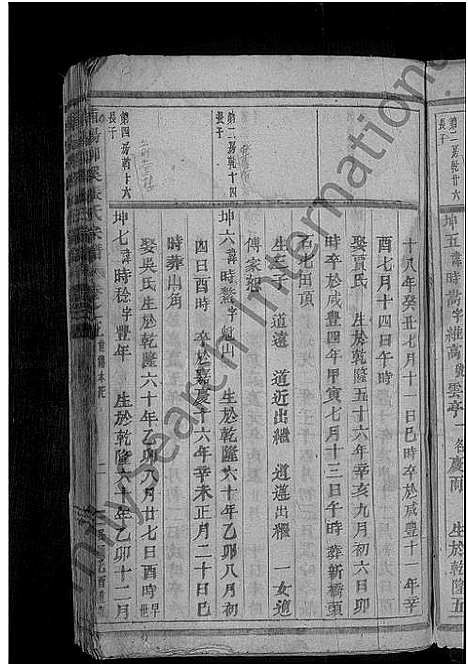 第二房乾廿六
長子
坤五諱時嵩字維高號雲亭一名慶雨 生於乾隆五
十八年癸丑七月十一日巳時卒於咸豐十一年辛
酉七月十四日午時
娶賈氏生於乾隆五十六年辛亥九月初六日卯
時卒於咸豐四年甲寅七月十三日午時葬新橋頭
石七田頂
生三子 道遠 道近出繼 道達出繼 一女適
傅家
第二房乾十四
長子
坤六諱時鰲字魁山 生於乾隆六十年乙卯八月初
四日酉時 卒於嘉慶十六年辛未正月二十日巳
時葬出角
娶吳氏生於乾隆六十年乙卯八月廿七日酉時早世
第四房前卞六
長子
坤七諱時稔字豐年 生於乾隆六十年乙卯十二月
FamilySearch International